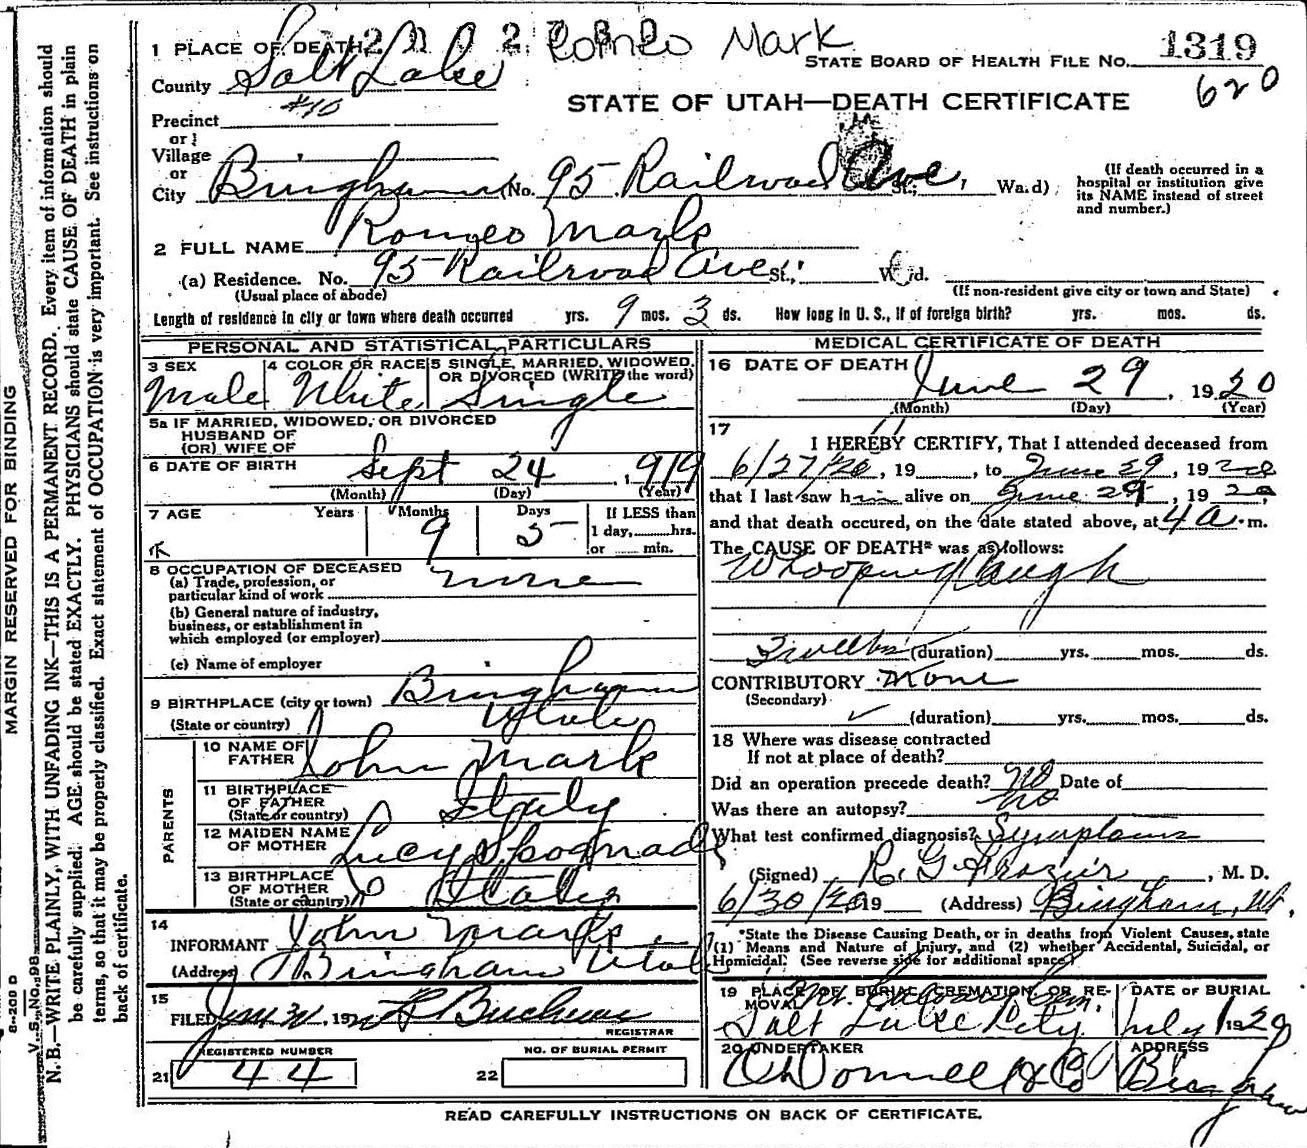 MARGIN RESERVED FOR BINDING
V. S. No. 98
N. B.—WRITE PLAINLY, WITH UNFADING INK—THIS IS A PERMANENT RECORD. Every item of information should
be carefully supplied. AGE should be stated EXACTLY. PHYSICIANS should state CAUSE OF DEATH in plain
terms, so that it may be properly classified. Exact statement of OCCUPATION is very important. See instructions on
back of certificate.
Romeo Mark
1 PLACE OF DEATH
STATE BOARD OF HEALTH FILE No. 1319
620
County Salt Lake
#10
STATE OF UTAH—DEATH CERTIFICATE
Precinct
or
Village
or
City Bingham (No. 95 Railroad Ave. St.; Ward)
(If death occurred in a
hospital or institution give
its NAME instead of street
and number.)
2 FULL NAME Romeo Mark
(a) Residence. No. 95 Railroad Ave. St., Wd.
(Usual place of abode)
(If non-resident give city or town and State)
Length of residence in city or town where death occurred yrs. 9 mos. 3 ds. How long in U. S., if of foreign birth? yrs. mos. ds.
PERSONAL AND STATISTICAL PARTICULARS
3 SEX Male
4 COLOR OR RACE White
5 SINGLE, MARRIED, WIDOWED,
OR DIVORCED (WRITE the word)
Single
5a IF MARRIED, WIDOWED, OR DIVORCED
HUSBAND OF
(OR) WIFE OF
6 DATE OF BIRTH Sept 24, 1919
(Month) (Day) (Year)
7 AGE Years Months Days If LESS than
9 5 1 day, hrs.
or min.
8 OCCUPATION OF DECEASED
(a) Trade, profession, or
particular kind of work none
(b) General nature of industry,
business, or establishment in
which employed (or employer)
(c) Name of employer
9 BIRTHPLACE (city or town) Bingham
(State or country) Utah
PARENTS
10 NAME OF
FATHER John Mark
11 BIRTHPLACE
OF FATHER
(State or country) Italy
12 MAIDEN NAME
OF MOTHER Lucy
13 BIRTHPLACE
OF MOTHER
(State or country) Italy
14
INFORMANT John Mark
(Address) Bingham Utah
15
FILED 19
REGISTRAR
REGISTERED NUMBER
21 44
NO. OF BURIAL PERMIT
22
MEDICAL CERTIFICATE OF DEATH
16 DATE OF DEATH June 29, 1920
(Month) (Day) (Year)
17
I HEREBY CERTIFY, That I attended deceased from
6/27/20, 19 , to June 29, 1920
that I last saw him alive on June 29, 1920
and that death occured, on the date stated above, at 4 a. m.
The CAUSE OF DEATH* was as follows:
Whooping Cough
3 weeks (duration) yrs. mos. ds.
CONTRIBUTORY None
(Secondary)
(duration) yrs. mos. ds.
18 Where was disease contracted
If not at place of death?
Did an operation precede death? No Date of
Was there an autopsy? No
What test confirmed diagnosis? Symptoms
(Signed) R. G. Frazier, M. D.
6/30/20 19 (Address) Bingham, Ut.
*State the Disease Causing Death, or in deaths from Violent Causes, state
(1) Means and Nature of Injury, and (2) whether Accidental, Suicidal, or
Homicidal. (See reverse side for additional space)
19 PLACE OF BURIAL, CREMATION, OR RE-
MOVAL
Salt Lake City
DATE OF BURIAL
July 1 1920
20 UNDERTAKER
O'Donnell & Co
ADDRESS
Bingham
READ CAREFULLY INSTRUCTIONS ON BACK OF CERTIFICATE.